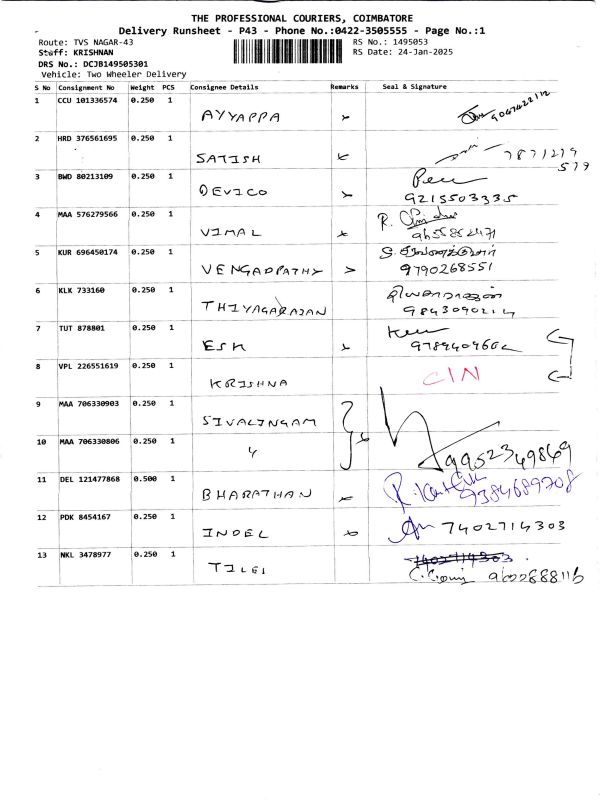 THE PROFESSIONAL COURIERS, COIMBATORE
Delivery Runsheet - P43 - Phone No.:0422-3505555 - Page No.:1
Route: TVS NAGAR-43 RS No.: 1495053
Staff: KRISHNAN RS Date: 24-Jan-2025
DRS No.: DCJB149505301
Vehicle: Two Wheeler Delivery
S No Consignment No Weight PCS Consignee Details Remarks Seal & Signature
1 CCU 101336574 0.250 1
AYYAPPA
2 HRD 376561695 0.250 1
SATISH 7871279
579
3 BWD 80213109 0.250 1
DEVICO 9215503335
4 MAA 576279566 0.250 1
VIMAL 9655862471
5 KUR 696450174 0.250 1
VENGADPATHY 9790268551
6 KLK 733160 0.250 1
THIYAGARAJAN
7 TUT 878801 0.250 1
ESK
8 VPL 226551619 0.250 1
KRISHNA CIN
9 MAA 706330903 0.250 1
SIVALINGAM
10 MAA 706330806 0.250 1
9952349869
11 DEL 121477868 0.500 1
BHARATHAN 9384689708
12 PDK 8454167 0.250 1
INDEL 7402714303
13 NKL 3478977 0.250 1